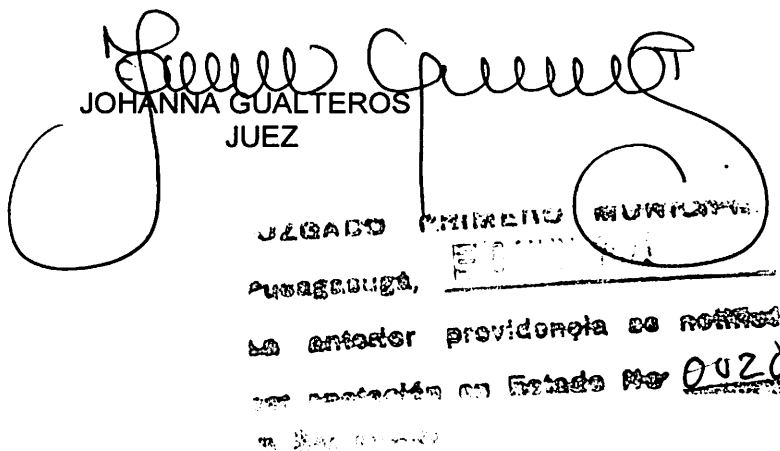 JOHANNA GUALTEROS
JUEZ
JUZGADO PRIMERO MUNICIPAL
Fusagasugá,
La anterior providencia se notificó
por anotación en Estado No 0020